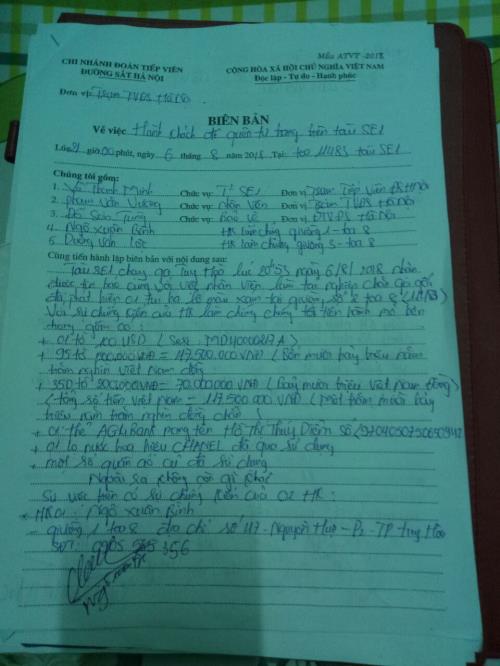 Mẫu ATVT - 2018
CHI NHÁNH ĐOÀN TIẾP VIÊN
ĐƯỜNG SẮT HÀ NỘI
CỘNG HÒA XÃ HỘI CHỦ NGHĨA VIỆT NAM
Độc lập - Tự do - Hạnh phúc
Đơn vị: Trạm TVĐS Hà Nội
BIÊN BẢN
Về việc Hành khách để quên tư trang trên tàu SE1
Lúc 21 giờ 00 phút, ngày 6 tháng 8 năm 2018 Tại: toa 11483 tàu SE1
Chúng tôi gồm:
1. Vũ Thanh Minh Chức vụ: Tr SE1 Đơn vị Trạm Tiếp Viên ĐS Hà Nội
2. Phạm Văn Vương Chức vụ: Nhân viên Đơn vị Trạm TVĐS Hà Nội
3. Đỗ Sơn Tùng Chức vụ: Bảo vệ Đơn vị ĐTVĐS Hà Nội
4. Ngô Xuân Bình HK làm chứng giường 1 - toa 8
5. Dương Văn Lốc HK làm chứng giường 3 - toa 8
Cùng tiến hành lập biên bản với nội dung sau:
Tàu SE1 chạy ga Tuy Hòa lúc 20h53 ngày 6/8/2018 nhận
được tin báo cùng với việc nhân viên làm tác nghiệp chăn ga gối
đã phát hiện 01 túi da lộ màu xám tại giường số 2 toa 8
Với sự chứng kiến của HK làm chứng chúng tôi tiến hành mở bên
trong gồm có:
+ 01 tờ 100 USD (Seri: MD40002117A)
+ 95 tờ 500.000 VNĐ = 47.500.000 VNĐ (Bốn mươi bảy triệu năm
trăm nghìn Việt Nam đồng
+ 350 tờ 200.000 VNĐ = 70.000.000 VNĐ (bảy mươi triệu Việt Nam Đồng)
(tổng số tiền Việt Nam = 117.500.000 VNĐ (Một trăm mười bảy
triệu năm trăm nghìn đồng chẵn)
+ 01 thẻ AGRiBank mang tên Hồ Thị Thúy Diễm Số
+ 01 lọ nước hoa hiệu CHANEL đã qua sử dụng
+ một số quần áo cũ đã sử dụng
Ngoài ra không còn gì khác
Sự việc trên có sự chứng kiến của 02 HK:
+ HK 01: Ngô Xuân Bình
- giường 1 toa 8 địa chỉ số 117 - Nguyễn Huệ - P5 - TP Tuy Hòa
SĐT: 0905 565 356
Ngô Xuân Bình